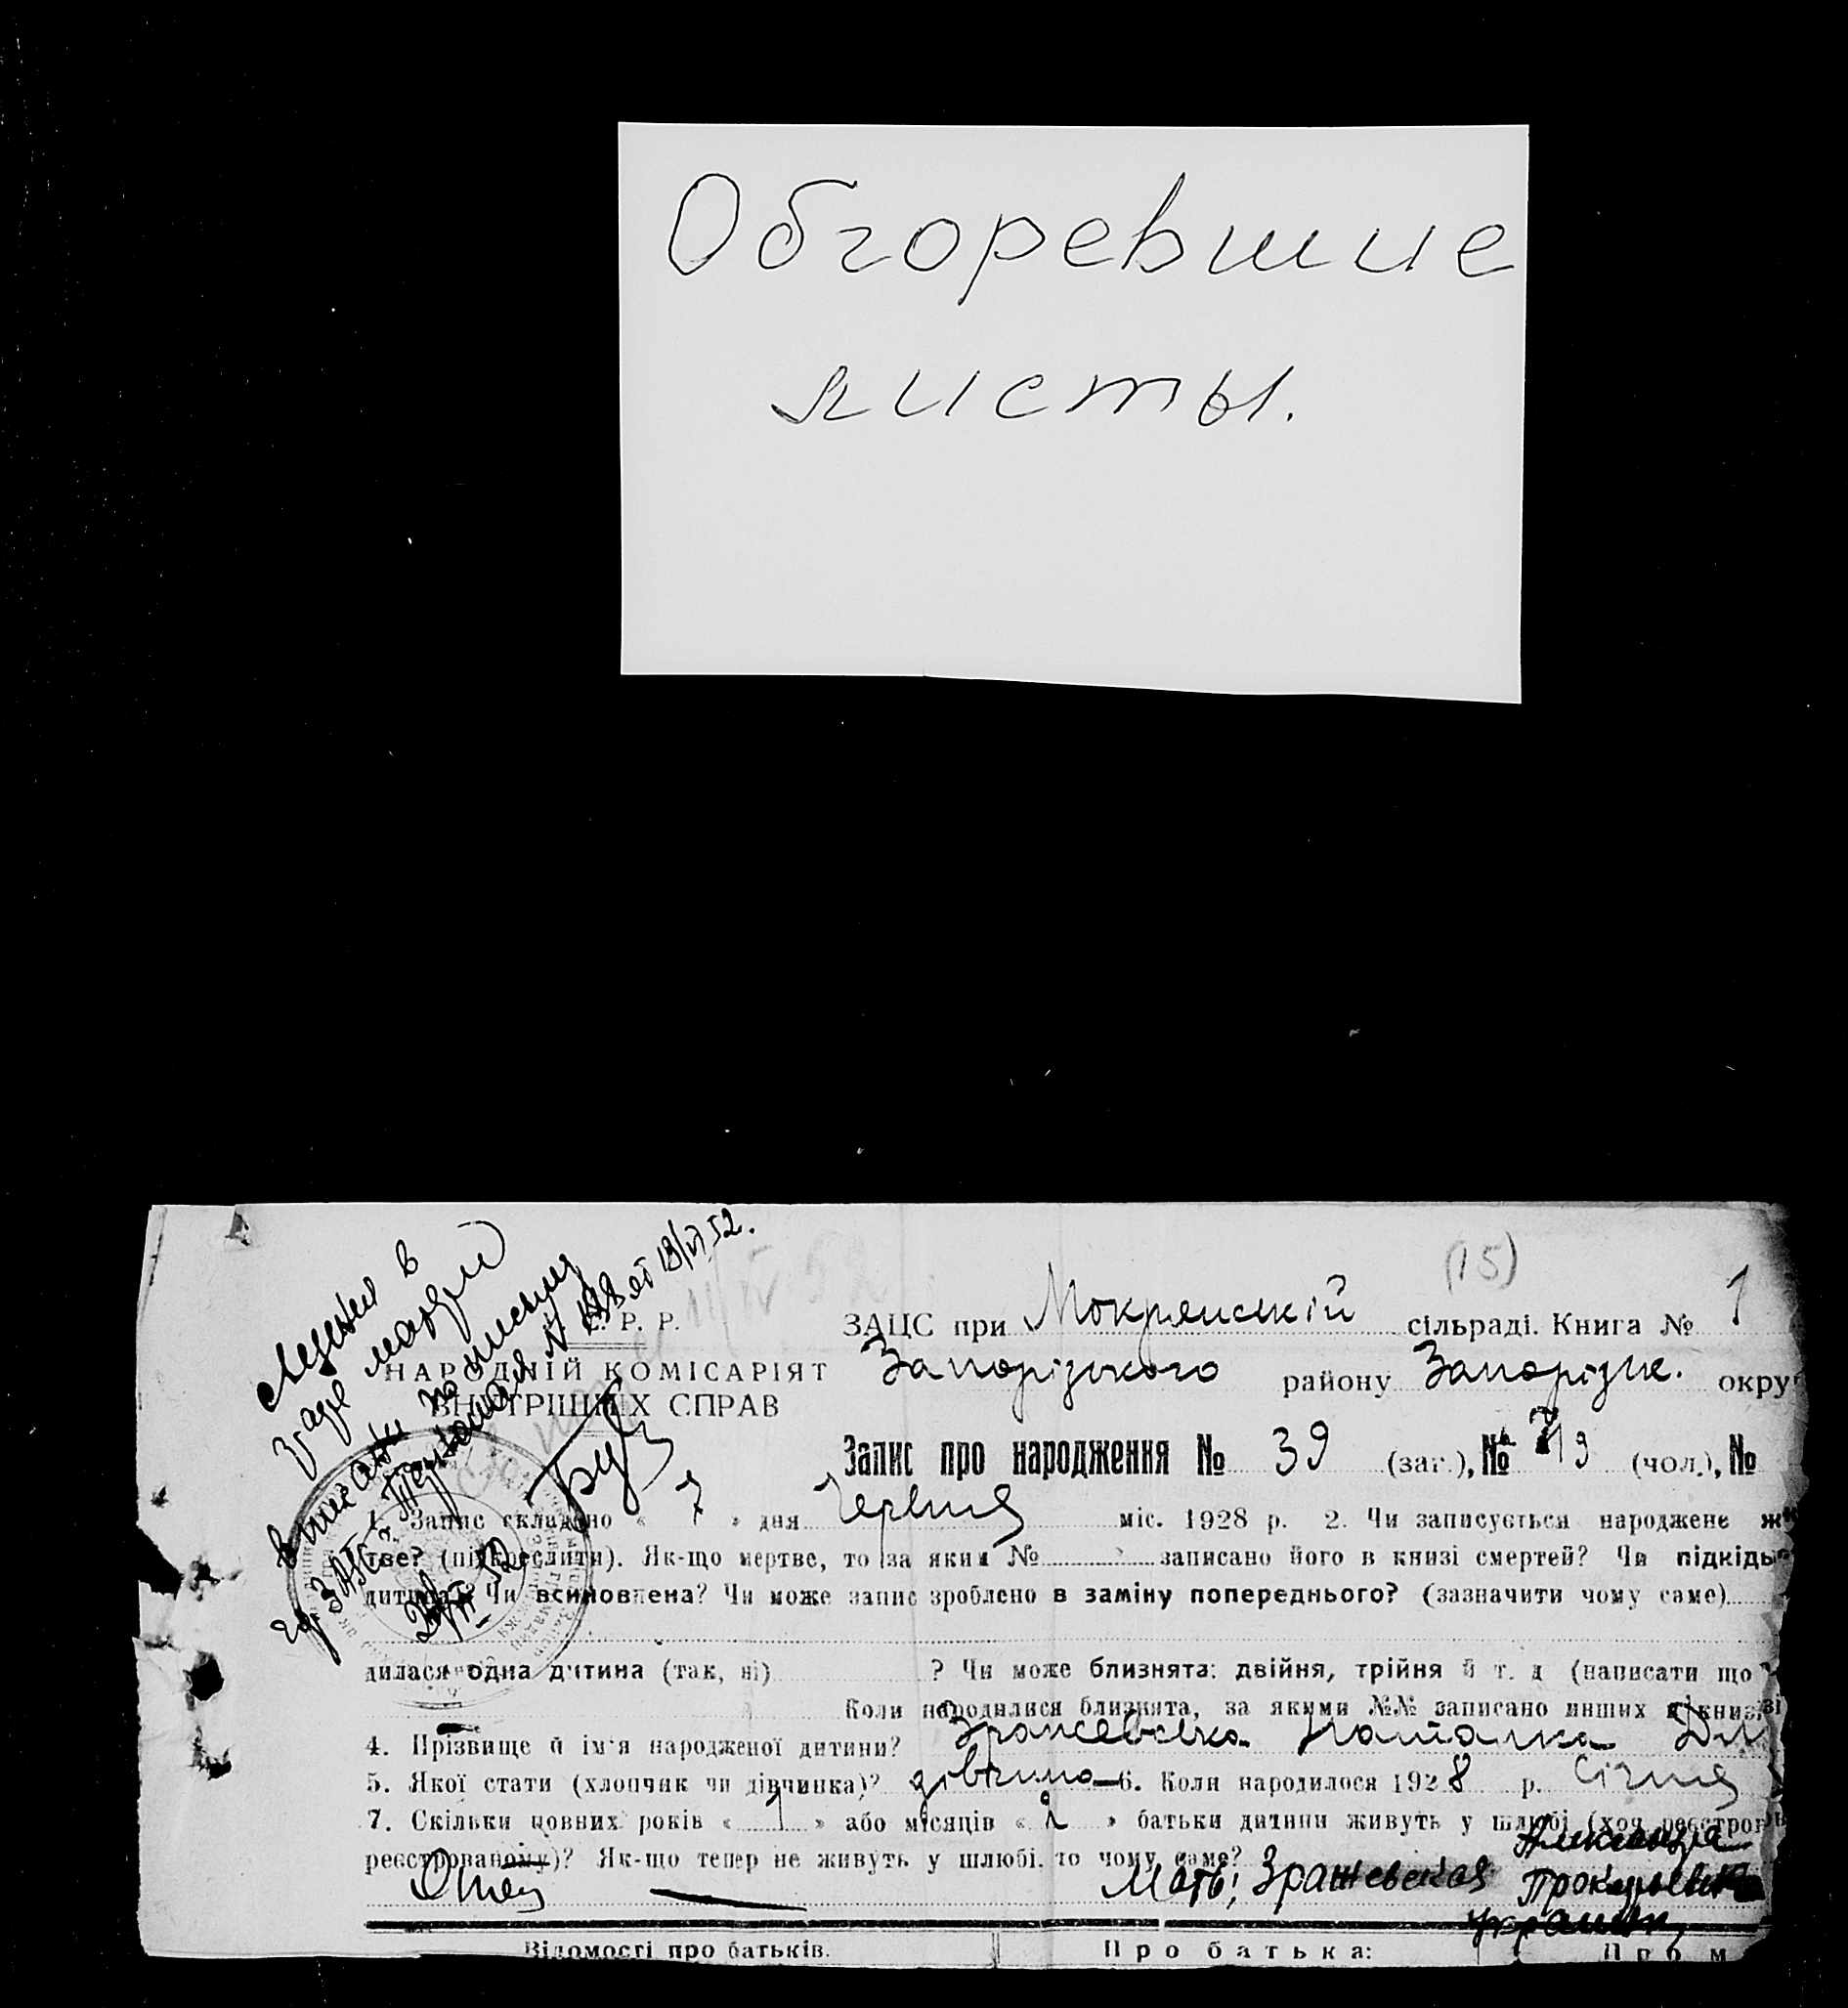 Обгоревшие
листы.
(15)
С. Р. Р.
ЗАЦС при Мокрянській сільраді. Книга № 1
НАРОДНІЙ КОМІСАРІЯТ
ВНУТРІШНІХ СПРАВ
Запорізького району Запорізк. окру
Запис про народження № 39 (заг.), № 19 (чол.), №
1. Запис складено « 7 » дня Червня міс. 1928 р. 2. Чи записується народжене
тве? (підкреслити). Як-що мертве, то за яким № записано його в книзі смертей? Чи підкідь
дитина? Чи всиновлена? Чи може запис зроблено в заміну попереднього? (зазначити чому саме)
дилася одна дитина (так, ні) ? Чи може близнята: двійня, трійня й т. д (написати що
Коли народилися близнята, за якими №№ записано инших в книзі
4. Прізвище й ім'я народженої дитини? Зражевська Наталка
5. Якої стати (хлопчик чи дівчинка)? дівчина 6. Коли народилося 1928 р. Січня
7. Скільки повних років « 1 » або місяців « 2 » батьки дитини живуть у шлюбі (хоч реєстров
реєстрованому)? Як-що тепер не живуть у шлюбі, то чому саме?
Александра
Отец Мать: Зражевская Прокофьевна
украинк
Відомості про батьків. Про батька: Про м